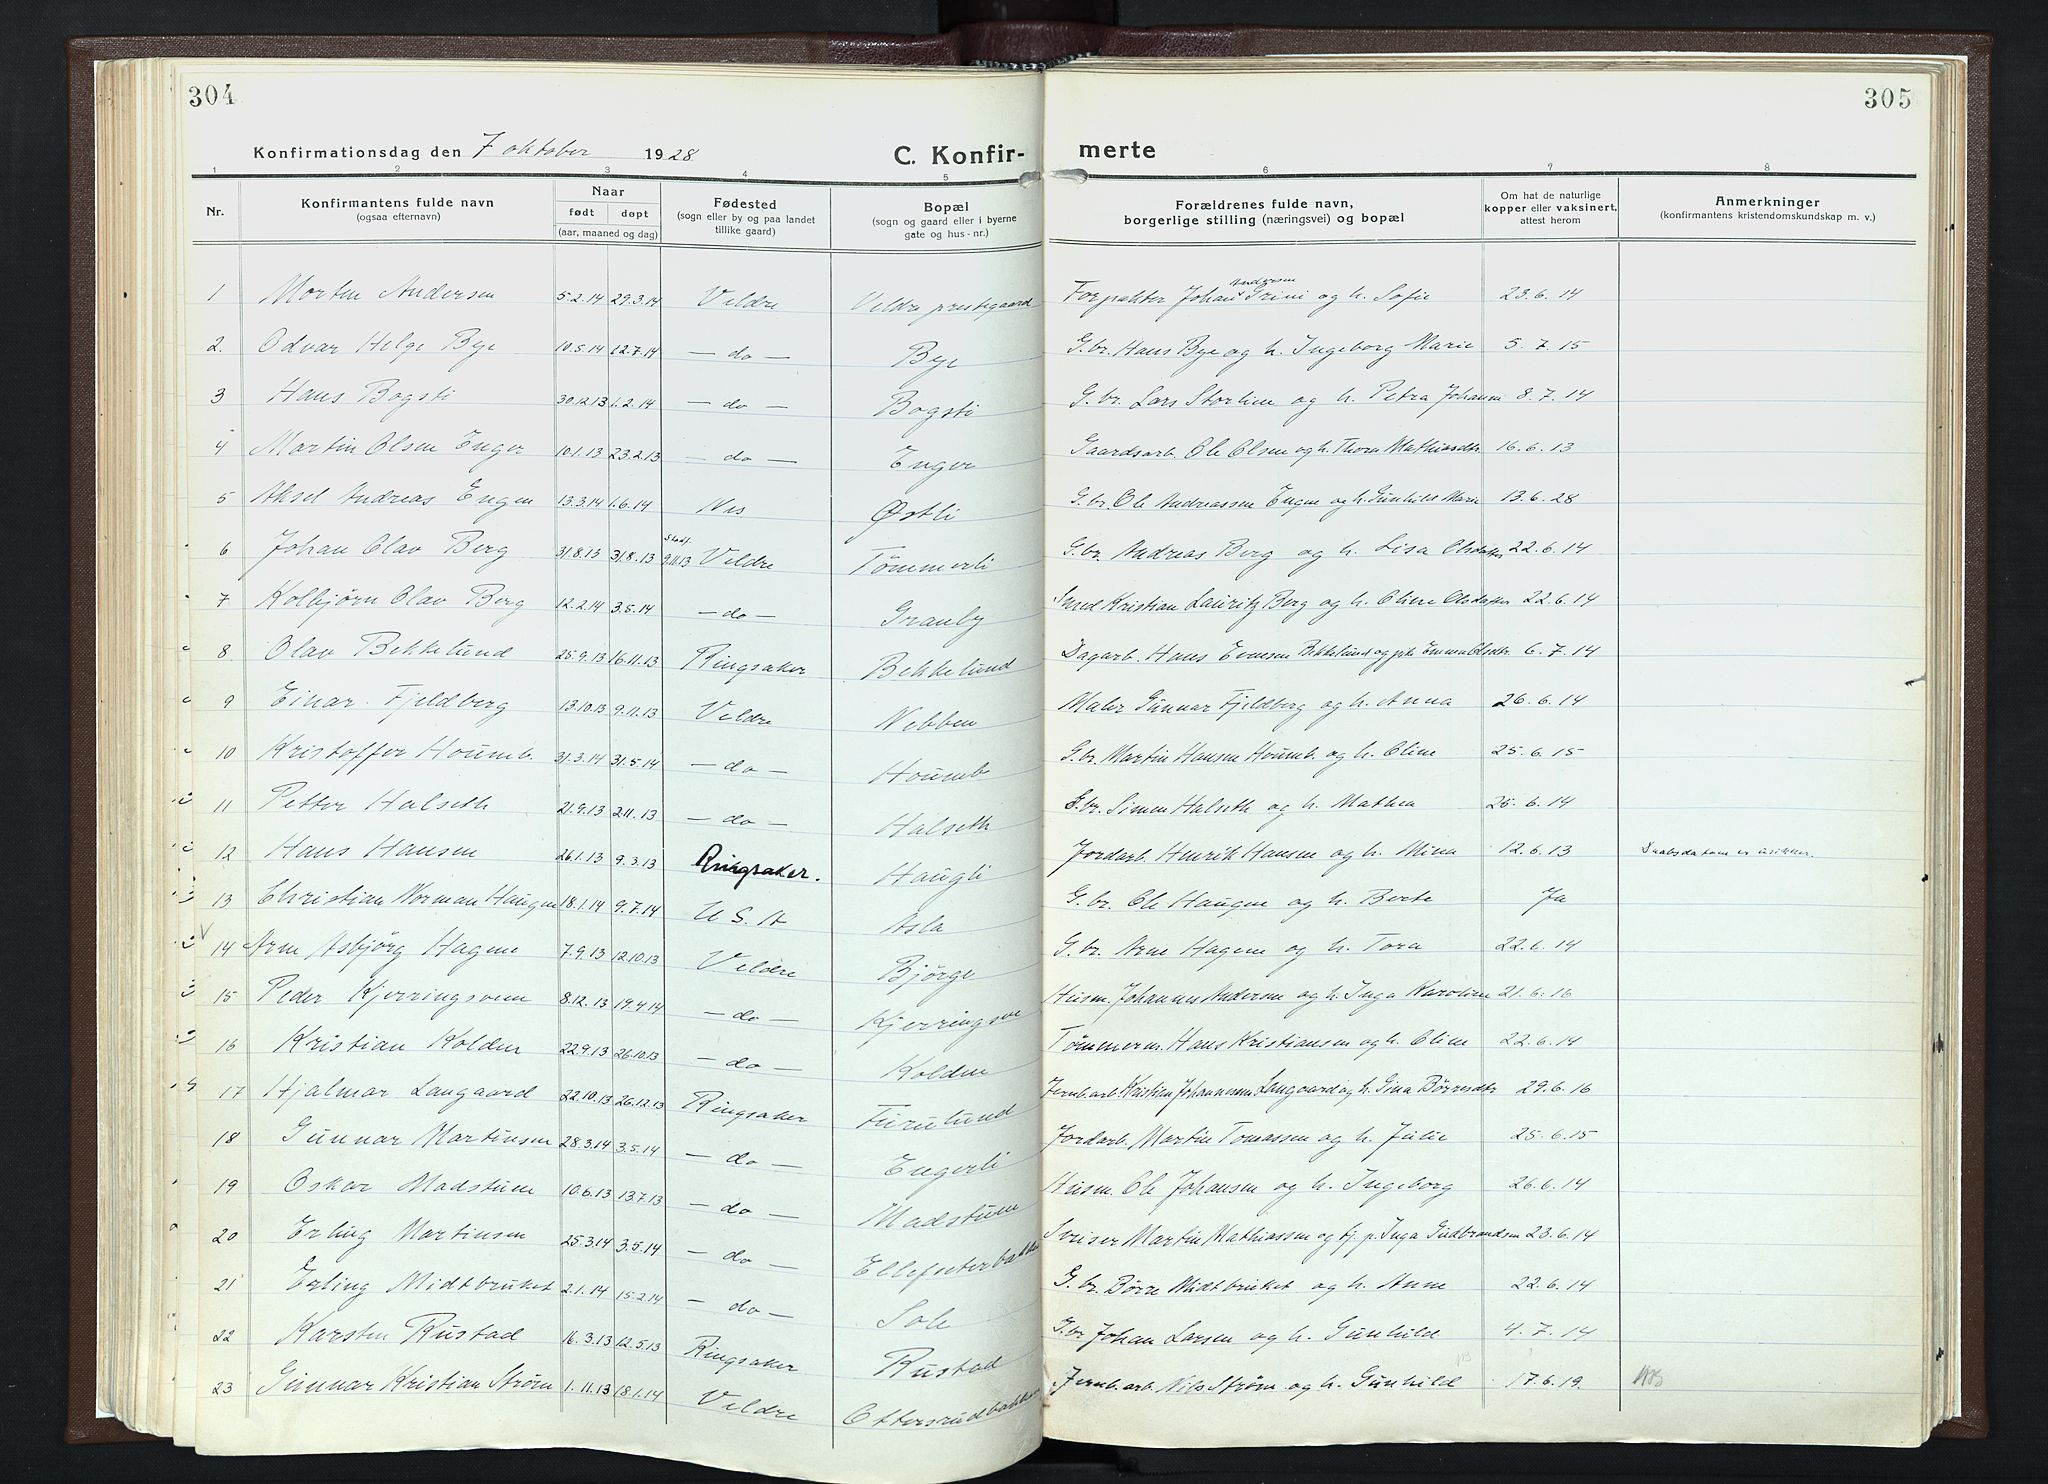 304
305
Konfirmationsdag den 7 oktober 1928
C. Konfir-
merte
1 2 3 4 5 6 7 8
Nr.
Konfirmantens fulde navn
(ogsaa efternavn)
Naar
født
døpt
(aar, maaned og dag)
Fødested
(sogn eller by og paa landet
tillike gaard)
Bopæl
(sogn og gaard eller i byerne
gate og hus-nr.)
Forældrenes fulde navn,
borgerlige stilling (næringsvei) og bopæl
Om hat de naturlige
kopper eller vaksinert,
attest herom
Anmerkninger
(konfirmantens kristendomskundskap m. v.)
1 Morten Andersen 5.2.14 29.3.14 Veldre Veldre prestegaard Forpakter Johan Andersen Grini og h. Sofie 23.6.14
2. Odvar Helge Bye 10.5.14 12.7.14 — do — Bye G.br. Hans Bye og h. Ingeborg Marie 5.7.15
3 Hans Bogsti 30.12.13 1.2.14 — do — Bogsti G.br. Lars Storlien og h. Petra Johansen 8.7.14
4 Martin Olsen Enger 10.1.13 23.2.13 — do — Enger Gaardsarb. Ole Olsen og h. Thora Mathiasdtr. 16.6.13
5 Aksel Andreas Engen 13.3.14 1.6.14 Nes Østli G.br. Ole Andreassen Engen og h. Gunhild Marie 13.6.28
6 Johan Olav Berg 31.8.13 31.8.13 Stadf. 9.11.13 Veldre Tømmerli G.br. Andreas Berg og h. Lisa Olsdatter 22.6.14
7 Kolbjørn Olav Berg 12.2.14 3.5.14 — do — Granby Kristian Lauritz Berg og h. Oline Olsdatter 22.6.14
8 Olav Bekkelund 25.9.13 16.11.13 Ringsaker Bekkelund Dagarb. Hans Evensen Bekkelund og Emma Olsdtr. 6.7.14
9 Einar Fjeldberg 13.10.13 9.11.13 Veldre Nebben Maler Gunnar Fjeldberg og h. Anna 26.6.14
10 Kristoffer Houmb. 31.3.14 31.5.14 — do — Houmb G.br. Martin Hansen Houmb. og h. Oline 25.6.15
11 Petter Halseth 21.9.13 2.11.13 — do — Halseth G.br. Simen Halseth og h. Mathea 25.6.14
12 Hans Hansen 26.1.13 9.3.13 Ringsaker. Haugli Jordarb. Henrik Hansen og h. Mina 12.6.13 Daabsdatoen er usikker.
13 Christian Norman Haugen 18.1.14 9.7.14 U S. A Asla G.br. Ole Haugen og h. Berte Ja
14 Arne Asbjørg Hagene 7.9.13 12.10.13 Veldre Bjørge G.br. Arne Hagene og h. Tora 22.6.14
15 Peder Kjerringsveen 8.12.13 19.4.14 — do — Kjerringsve Husm. Johannes Andersen og h. Inga Karoline 21.6.16
16 Kristian Kolden 22.9.13 26.10.13 — do — Kolden Tømmerm. Hans Kristiansen og h. Oline 22.6.14
17 Hjalmar Langaard 22.10.13 26.12.13 Ringsaker Furulund Jernb.arb. Kristian Johannesen Langaard og h. Gina Børresdtr 29.6.16
18 Gunnar Martinsen 28.3.14 3.5.14 — do — Engerli Jordarb. Martin Tomassen og h. Julie 25.6.15
19 Oskar Madstuen 10.6.13 13.7.13 — do — Madstuen Husm. Ole Johansen og h. Ingeborg 26.6.14
20 Erling Martinsen 25.3.14 3.5.14 — do — Ellefseterbakken Sveiser Martin Mathiassen og fj. p. Inga Gudbrandsen 23.6.14
21 Erling Midtbruket 2.1.14 15.2.14 — do — Sole G.br. Børre Midtbruket og h. Anne 22.6.14
22 Karsten Rustad 16.3.13 12.5.13 Ringsaker Rustad G.br. Johan Larsen og h. Gunhild 4.7.14
23 Gunnar Kristian Strøm 1.11.13 18.1.14 Veldre Ottersrudbakken Jernb.arb. Nils Strøm og h. Gunhild 17.6.19